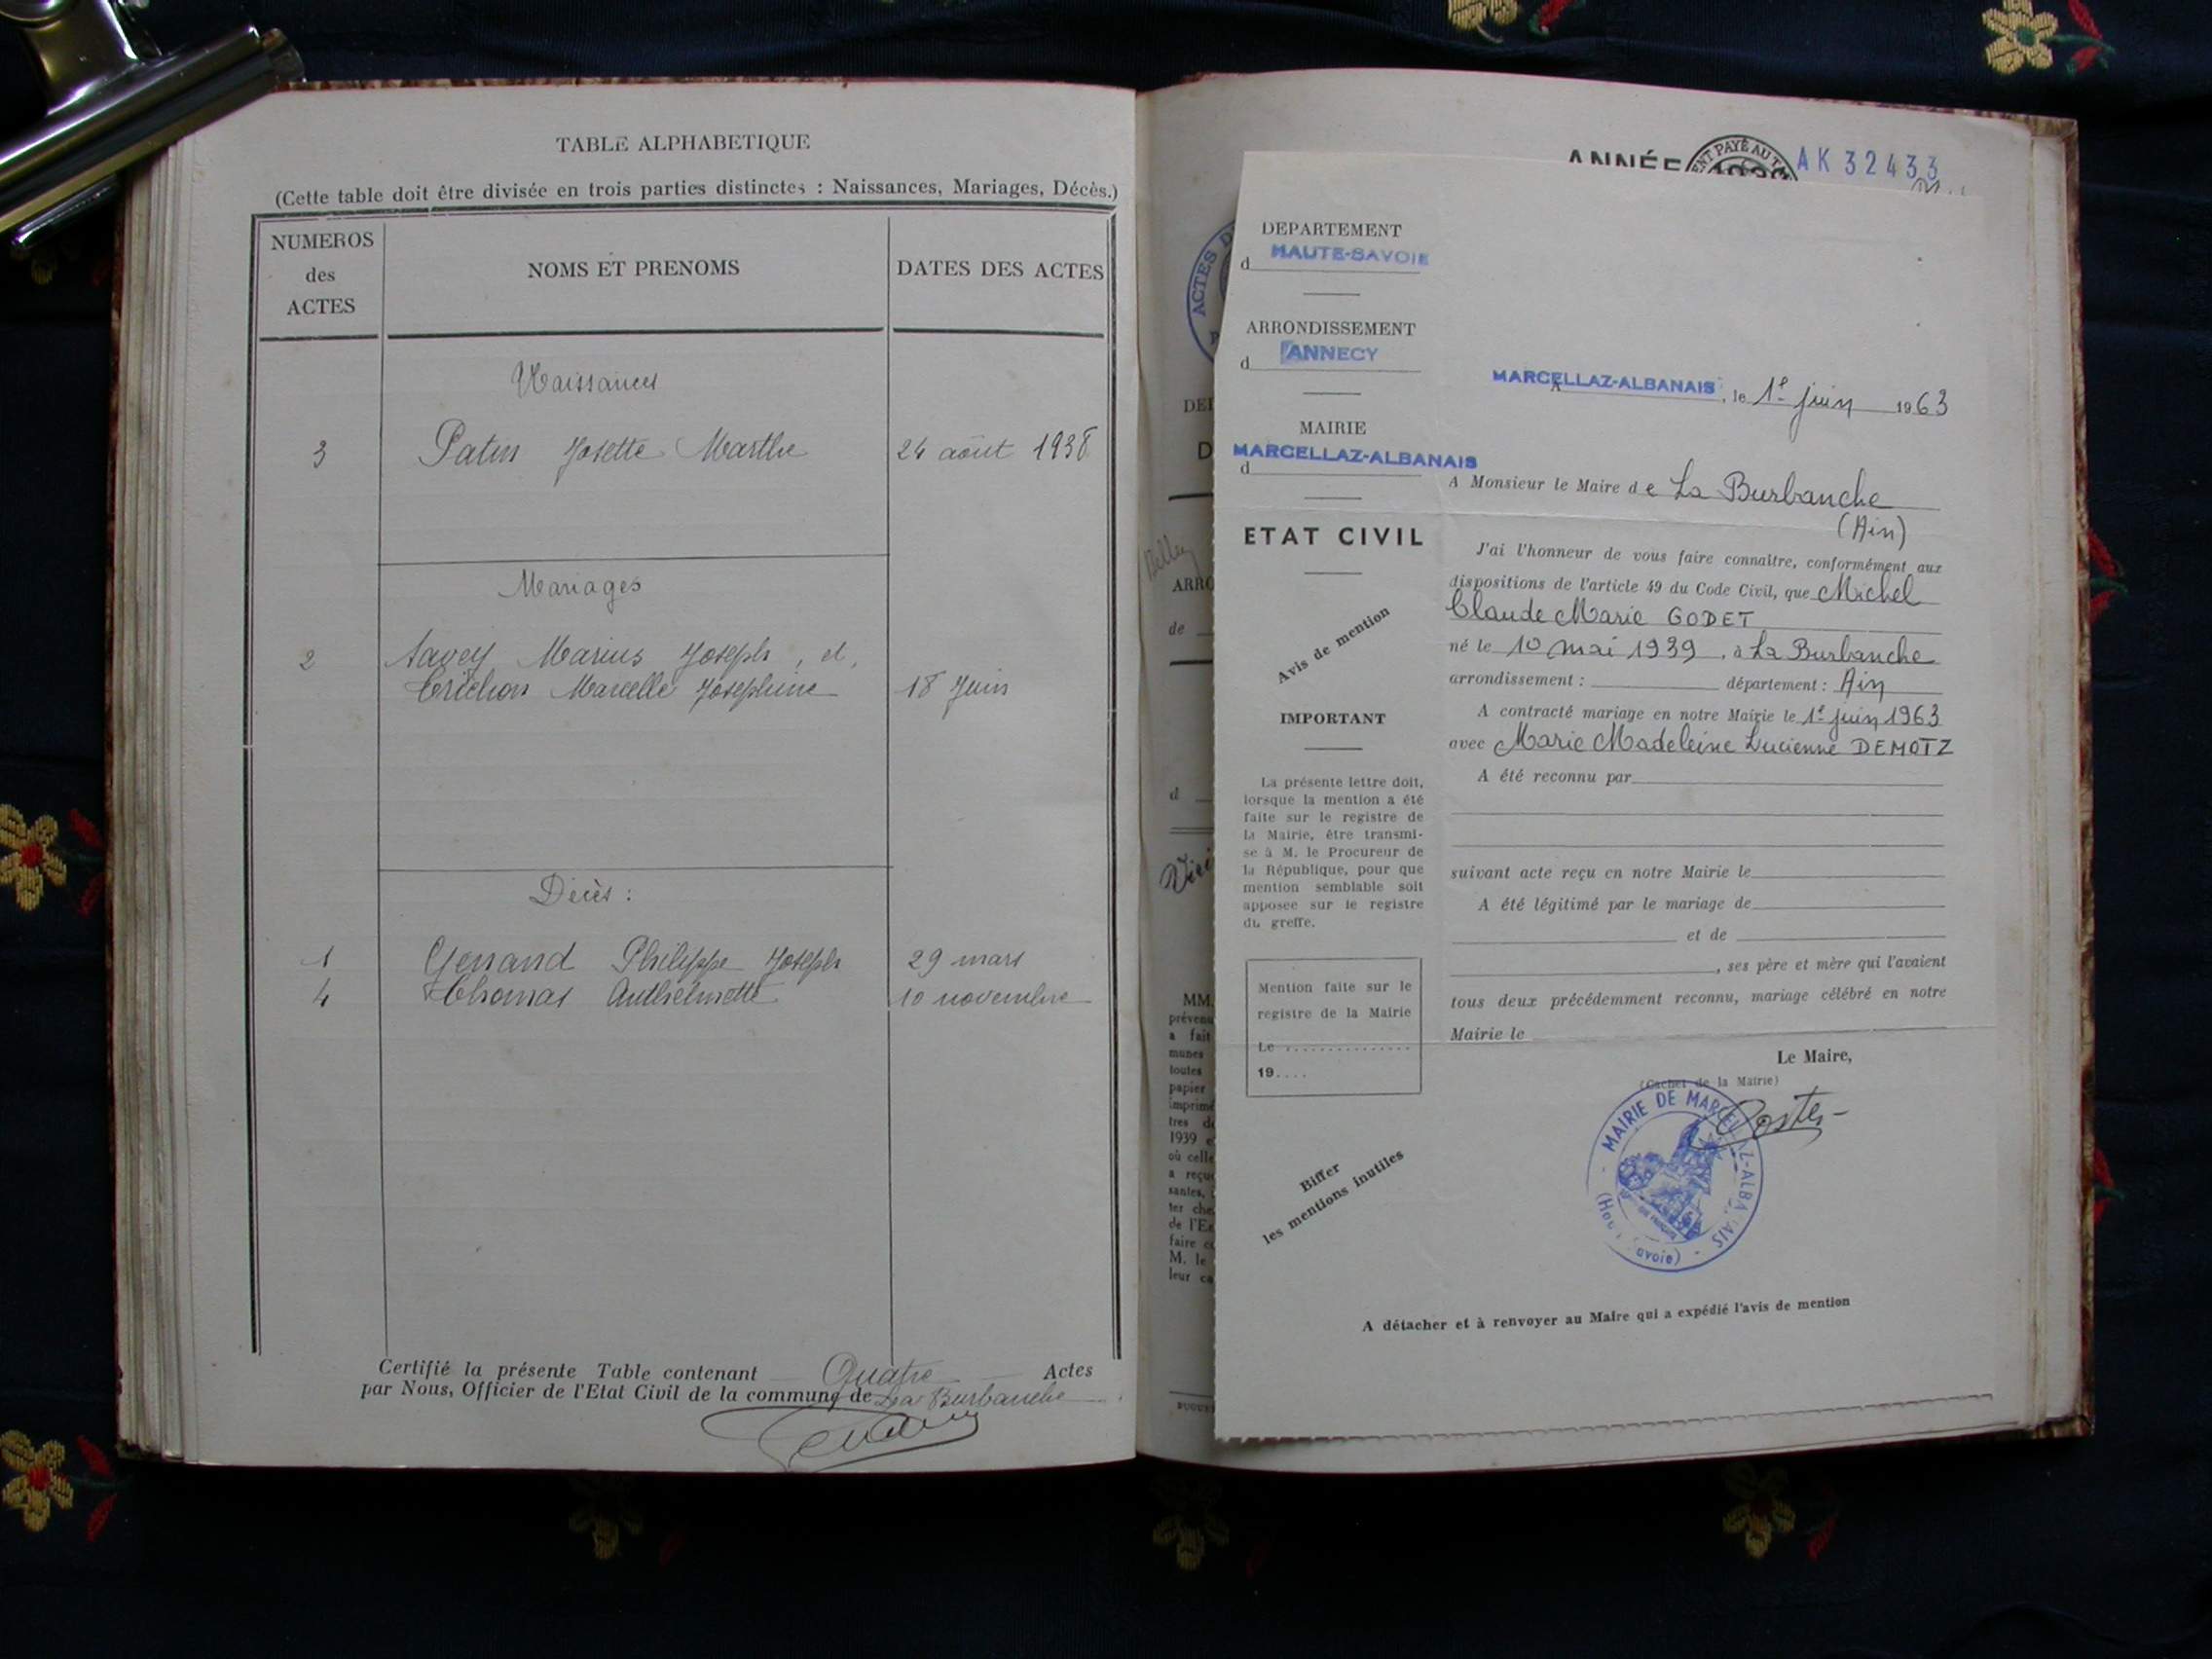 TABLE ALPHABETIQUE
(Cette table doit être divisée en trois parties distinctes : Naissances, Mariages, Décès.)
NUMEROS des ACTES
NOMS ET PRENOMS
DATES DES ACTES
Naissances
3 Patin Josette Marthe 24 août 1938
Mariages
2 Savey Marius Joseph, et,
Créchon Marcelle Josephine 18 Juin
Décès :
1 Genand Philippe Joseph 29 mars
4 Thomas Anthelmette 10 novembre
Certifié la présente Table contenant Quatre Actes
par Nous, Officier de l'Etat Civil de la commune de La Burbanche
ANNÉE
AK 32433
DEPARTEMENT
d HAUTE-SAVOIE
ARRONDISSEMENT
d ANNECY
MAIRIE
d MARCELLAZ-ALBANAIS
ETAT CIVIL
Avis de mention
IMPORTANT
La présente lettre doit,
lorsque la mention a été
faite sur le registre de
la Mairie, être transmi-
se à M. le Procureur de
la République, pour que
mention semblable soit
apposée sur le registre
du greffe.
Mention faite sur le
registre de la Mairie
Le ................
19....
Biffer
les mentions inutiles
A MARCELLAZ-ALBANAIS, le 1e juin 1963
A Monsieur le Maire de La Burbanche
(Ain)
J'ai l'honneur de vous faire connaître, conformément aux
dispositions de l'article 49 du Code Civil, que Michel
Claude Marie GODET
né le 10 mai 1939, à La Burbanche
arrondissement : département : Ain
A contracté mariage en notre Mairie le 1e juin 1963
avec Marie Madeleine Lucienne DEMOTZ
A été reconnu par
suivant acte reçu en notre Mairie le
A été légitimé par le mariage de
et de
, ses père et mère qui l'avaient
tous deux précédemment reconnu, mariage célébré en notre
Mairie le
Le Maire,
(Cachet de la Mairie)
MAIRIE DE MARCELLAZ-ALBANAIS
A détacher et à renvoyer au Maire qui a expédié l'avis de mention